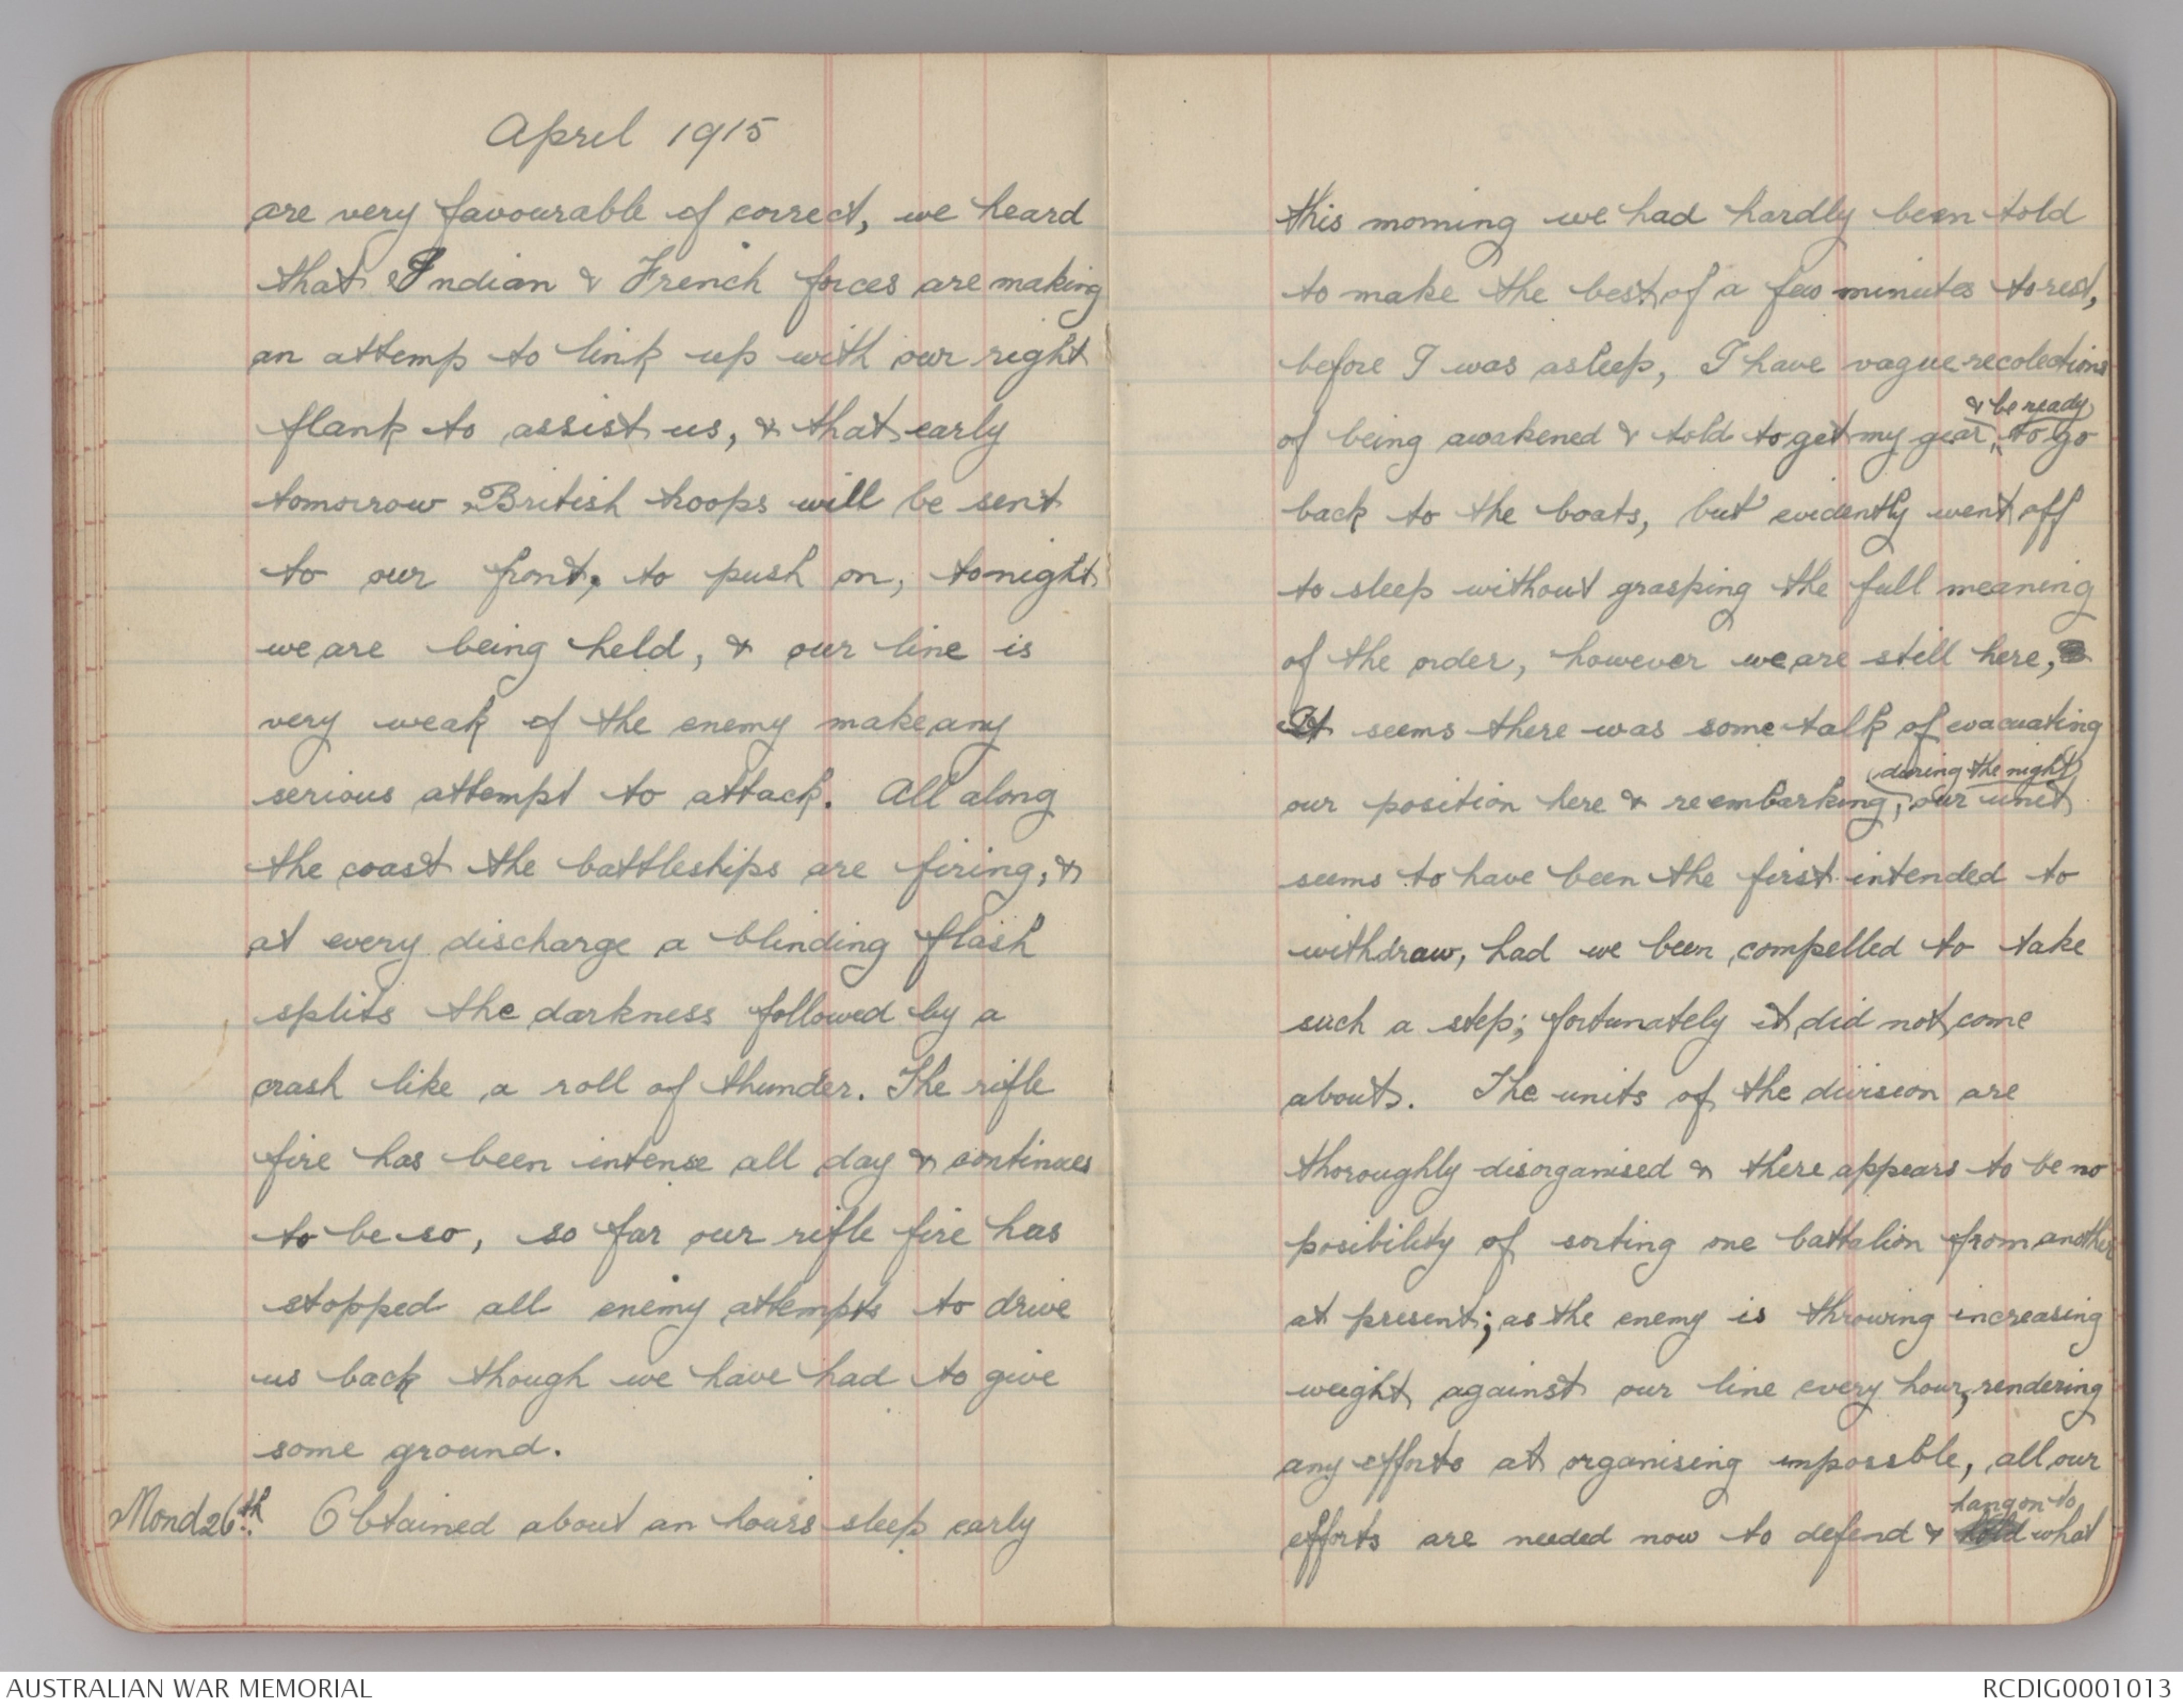 April 1915
are very favourable if correct, we heard
that Indian & French forces are making
an attemp to link up with our right
flank to assist us, & that early
tomorrow British troops will be sent
to our front, to push on, tonight
we are being held, & our line is
very weak if the enemy make any
serious attempt to attack. All along
the coast the battleships are firing, &
at every discharge a blinding flash
splits the darkness followed by a
crash like a roll of thunder. The rifle
fire has been intense all day & continues
to be so, so far our rifle fire has
stopped all enemy attempts to drive
us back though we have had to give
some ground.
Mond 26th. Obtained about an hours sleep early
this morning we had hardly been told
to make the best of a few minutes to rest,
before I was asleep, I have vague recolections
& be ready
of being awakened & told to get my gear, to go
back to the boats, but evidently went off
to sleep without grasping the full meaning
of the order, however we are still here,
It seems there was some talk of evacuating
(during the night)
our position here & reembarking, our unit
seems to have been the first intended to
withdraw, had we been compelled to take
such a step; fortunately it did not come
about. The units of the division are
thoroughly disorganised & there appears to be no
posibility of sorting one battalion from another
at present; as the enemy is throwing increasing
weight against our line every hour, rendering
any efforts at organising impossble, all our
hang on to
efforts are needed now to defend & hold what
AUSTRALIAN WAR MEMORIAL
RCDIG0001013